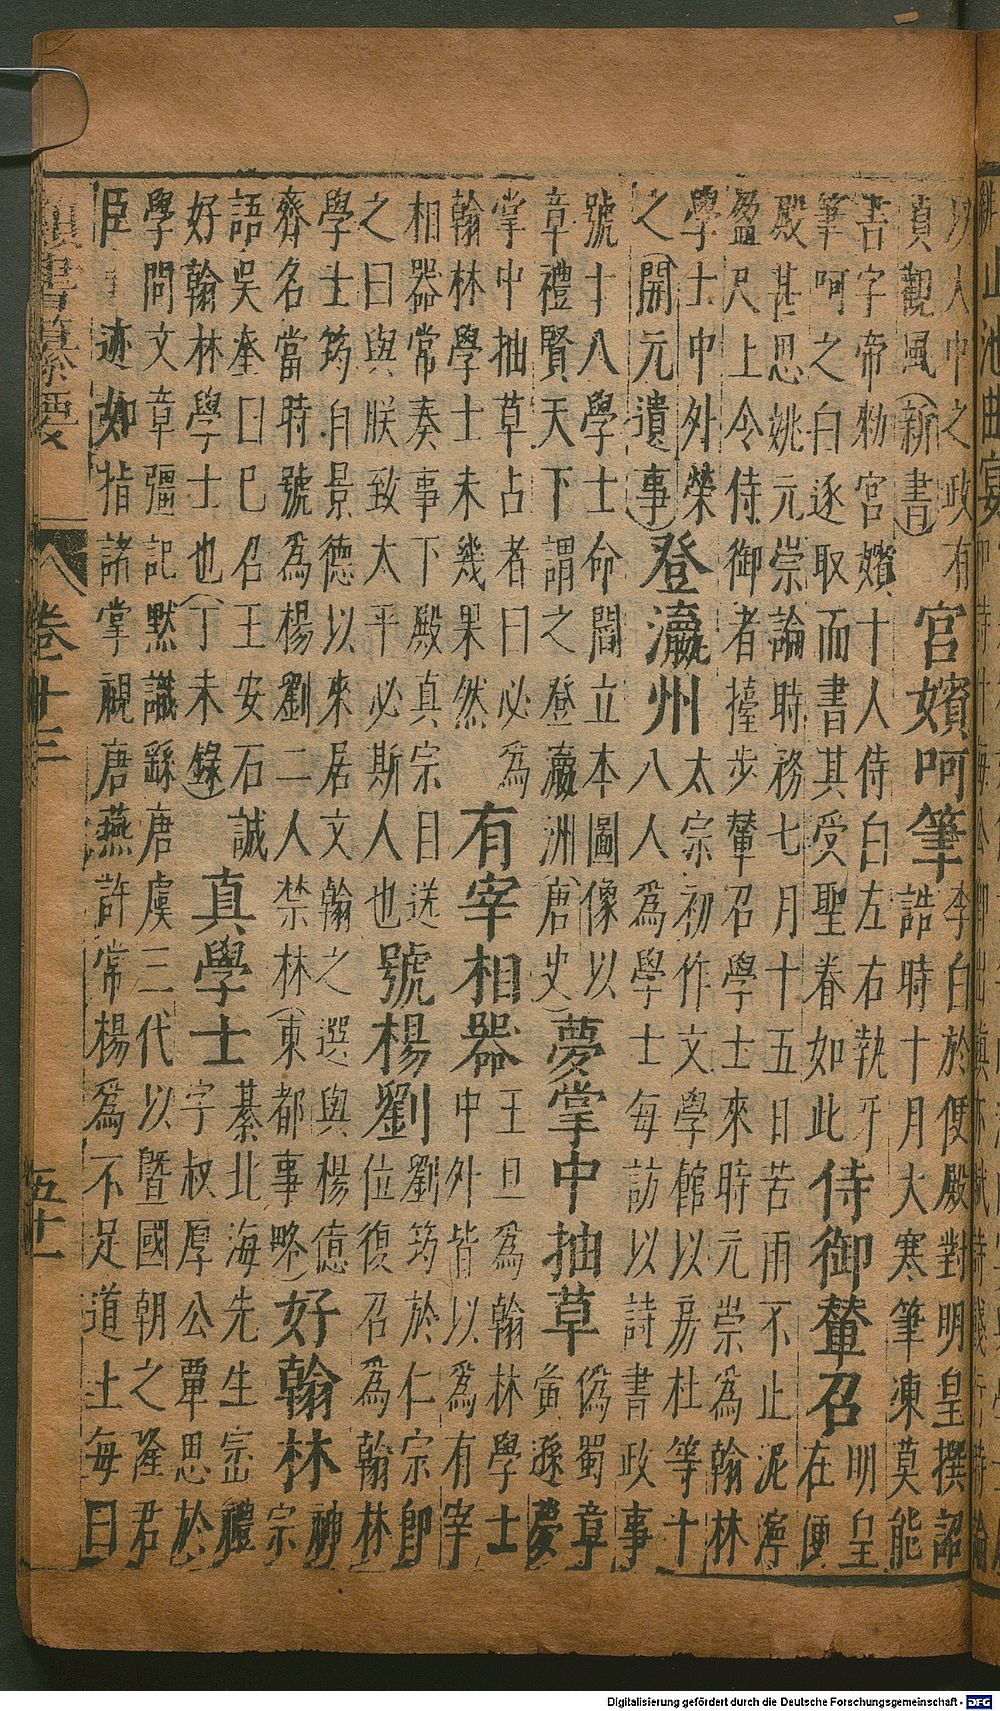 以人中之政有
貞觀風（新書）
官嬪呵筆
李白於便殿對明皇撰詔
誥時十月大寒筆凍莫能
書字帝勅宮嬪十人侍白左右執牙
筆呵之白逐取而書其受聖眷如此
侍御輦召
明皇
在便
殿甚思姚元崇論時務七月十五日苦雨不止泥濘
盈尺上令侍御者擡步輦召學士來時元崇為翰林
學士中外榮
之（開元遺事）
登瀛州
太宗初作文學館以房杜等十
八人為學士每訪以詩書政事
號十八學士命閻立本圖像以
章禮賢天下謂之登瀛洲（唐史）
夢掌中抽草
偽蜀章
黃遜夢
掌中抽草占者曰必為
翰林學士未幾果然
有宰相器
王旦為翰林學士
中外皆以為有宰
相器常奏事下殿真宗目送
之曰與朕致太平必斯人也
號楊劉
劉筠於仁宗即
位復召為翰林
學士筠自景德以來居文翰之選與楊億
齊名當時號為楊劉二人禁林（東都事略）
好翰林
神
宗
語吳奎曰已召王安石誠
好翰林學士也（丁未錄）
真學士
綦北海先生崈禮
字叔厚公覃思於
學問文章彊記默識繇唐虞三代以曁國朝之隆君
臣 迹如指諸掌視唐燕許常楊為不足道上每曰
類書纂要 卷十三 五十一
Digitalisierung gefördert durch die Deutsche Forschungsgemeinschaft - DFG